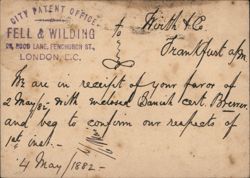 CITY PATENT OFFICE
FELL & WILDING
ROOD LANE, FENCHURCH ST.,
LONDON, E.C.
to Wirth & Co
Frankfurt a/m
We are in receipt of your favor of
2 May/82 with enclosed Danish cert. Brevor
and beg to confirm our respects of
1st inst. –
4 May / 1882 –